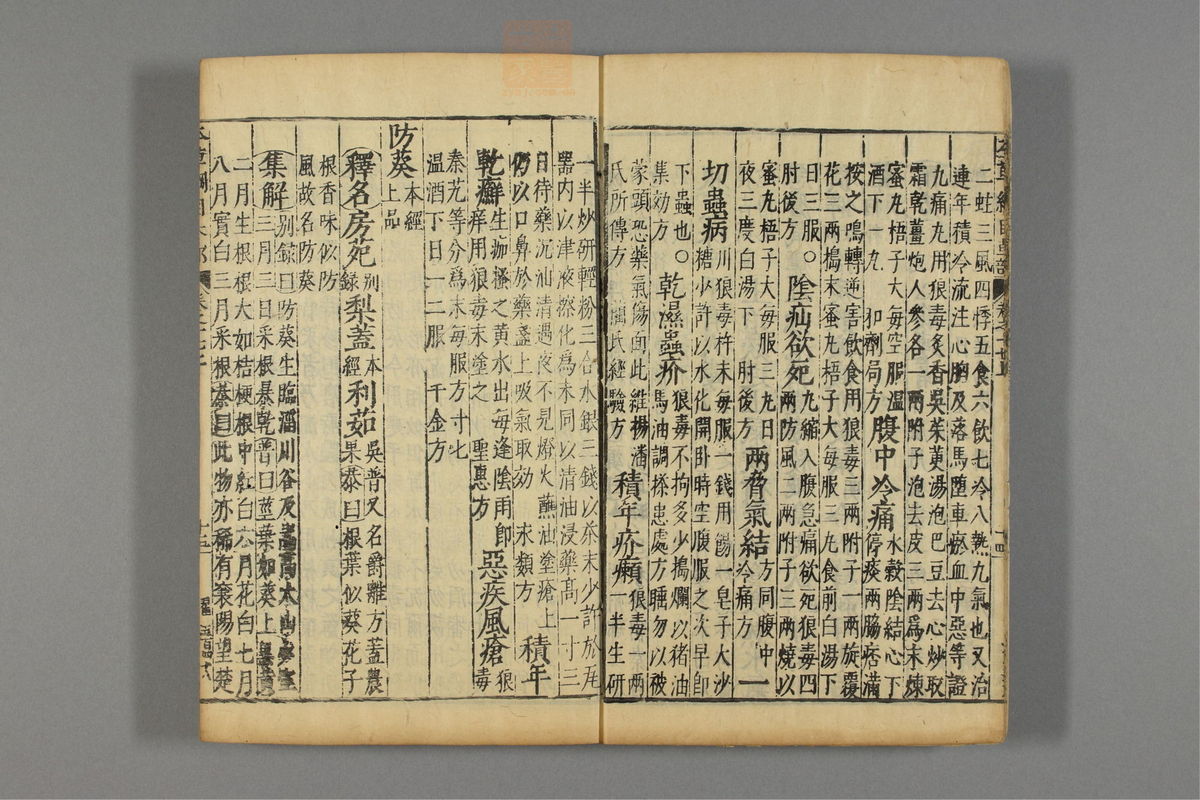 二蛀三風四悸五食六飲七冷八熱九氣也又治
連年積冷流注心胸及落馬墮車瘀血中惡等證
九痛丸用狼毒炙香吳茱萸湯泡巴豆去心炒取
霜乾薑炮人參各一兩附子泡去皮三兩爲末煉
蜜丸梧子大每空腹溫
酒下一丸 和劑局方 腹中冷痛水穀陰結心下停痰兩腸痞滿
按之鳴轉逆害飲食用狼毒三兩附子一兩旋覆
花三兩搗末蜜丸梧子大每服三丸食前白湯下
日三服。 陰疝欲死丸縮入腹急痛欲死狼毒四兩防風二兩附子三兩燒以
肘後方
蜜丸梧子大每服三丸日
夜三度白湯下 肘後方 兩脅氣結方同腹中冷痛方 一
切蟲病川狼毒杵末每服一錢用餳一皂子大沙糖少許以水化開臥時空腹服之次早卽
下蟲也。 乾濕蟲疥狼毒不拘多少搗爛以猪油馬油調搽患處方睡勿以被
集効方
蒙頭恐藥氣傷面此維揚潘
氏所傳方 藺氏經驗方 積年疥癩狼毒一兩一半生研
一半炒研輕粉三合水銀三錢以茶末少許於瓦
器內以津液擦化爲末同以清油浸藥高一寸三
日待藥沉油清遇夜不見燈火蘸油塗瘡上
仍以口鼻於藥盞上吸氣取効 永類方 積年
乾癬生痂搔之黃水出每逢陰雨卽痒用狼毒末塗之 聖惠方 惡疾風瘡狼毒
秦艽等分爲末每服方寸七
溫酒下日一二服 千金方
防葵本經上品
釋名房苑別錄梨蓋本經利茹吳普又名爵離方蓋農果㤗曰根葉似葵花子
根香味似防
風故名防葵
集解別錄曰防葵生臨淄川谷及嵩高太山少室三月三日采根暴乾普曰莖葉如葵上黑黃
二月生根根大如桔梗根中紅白六月花白七月
八月實白三月采根㤗曰此物亦稀有襄陽望楚